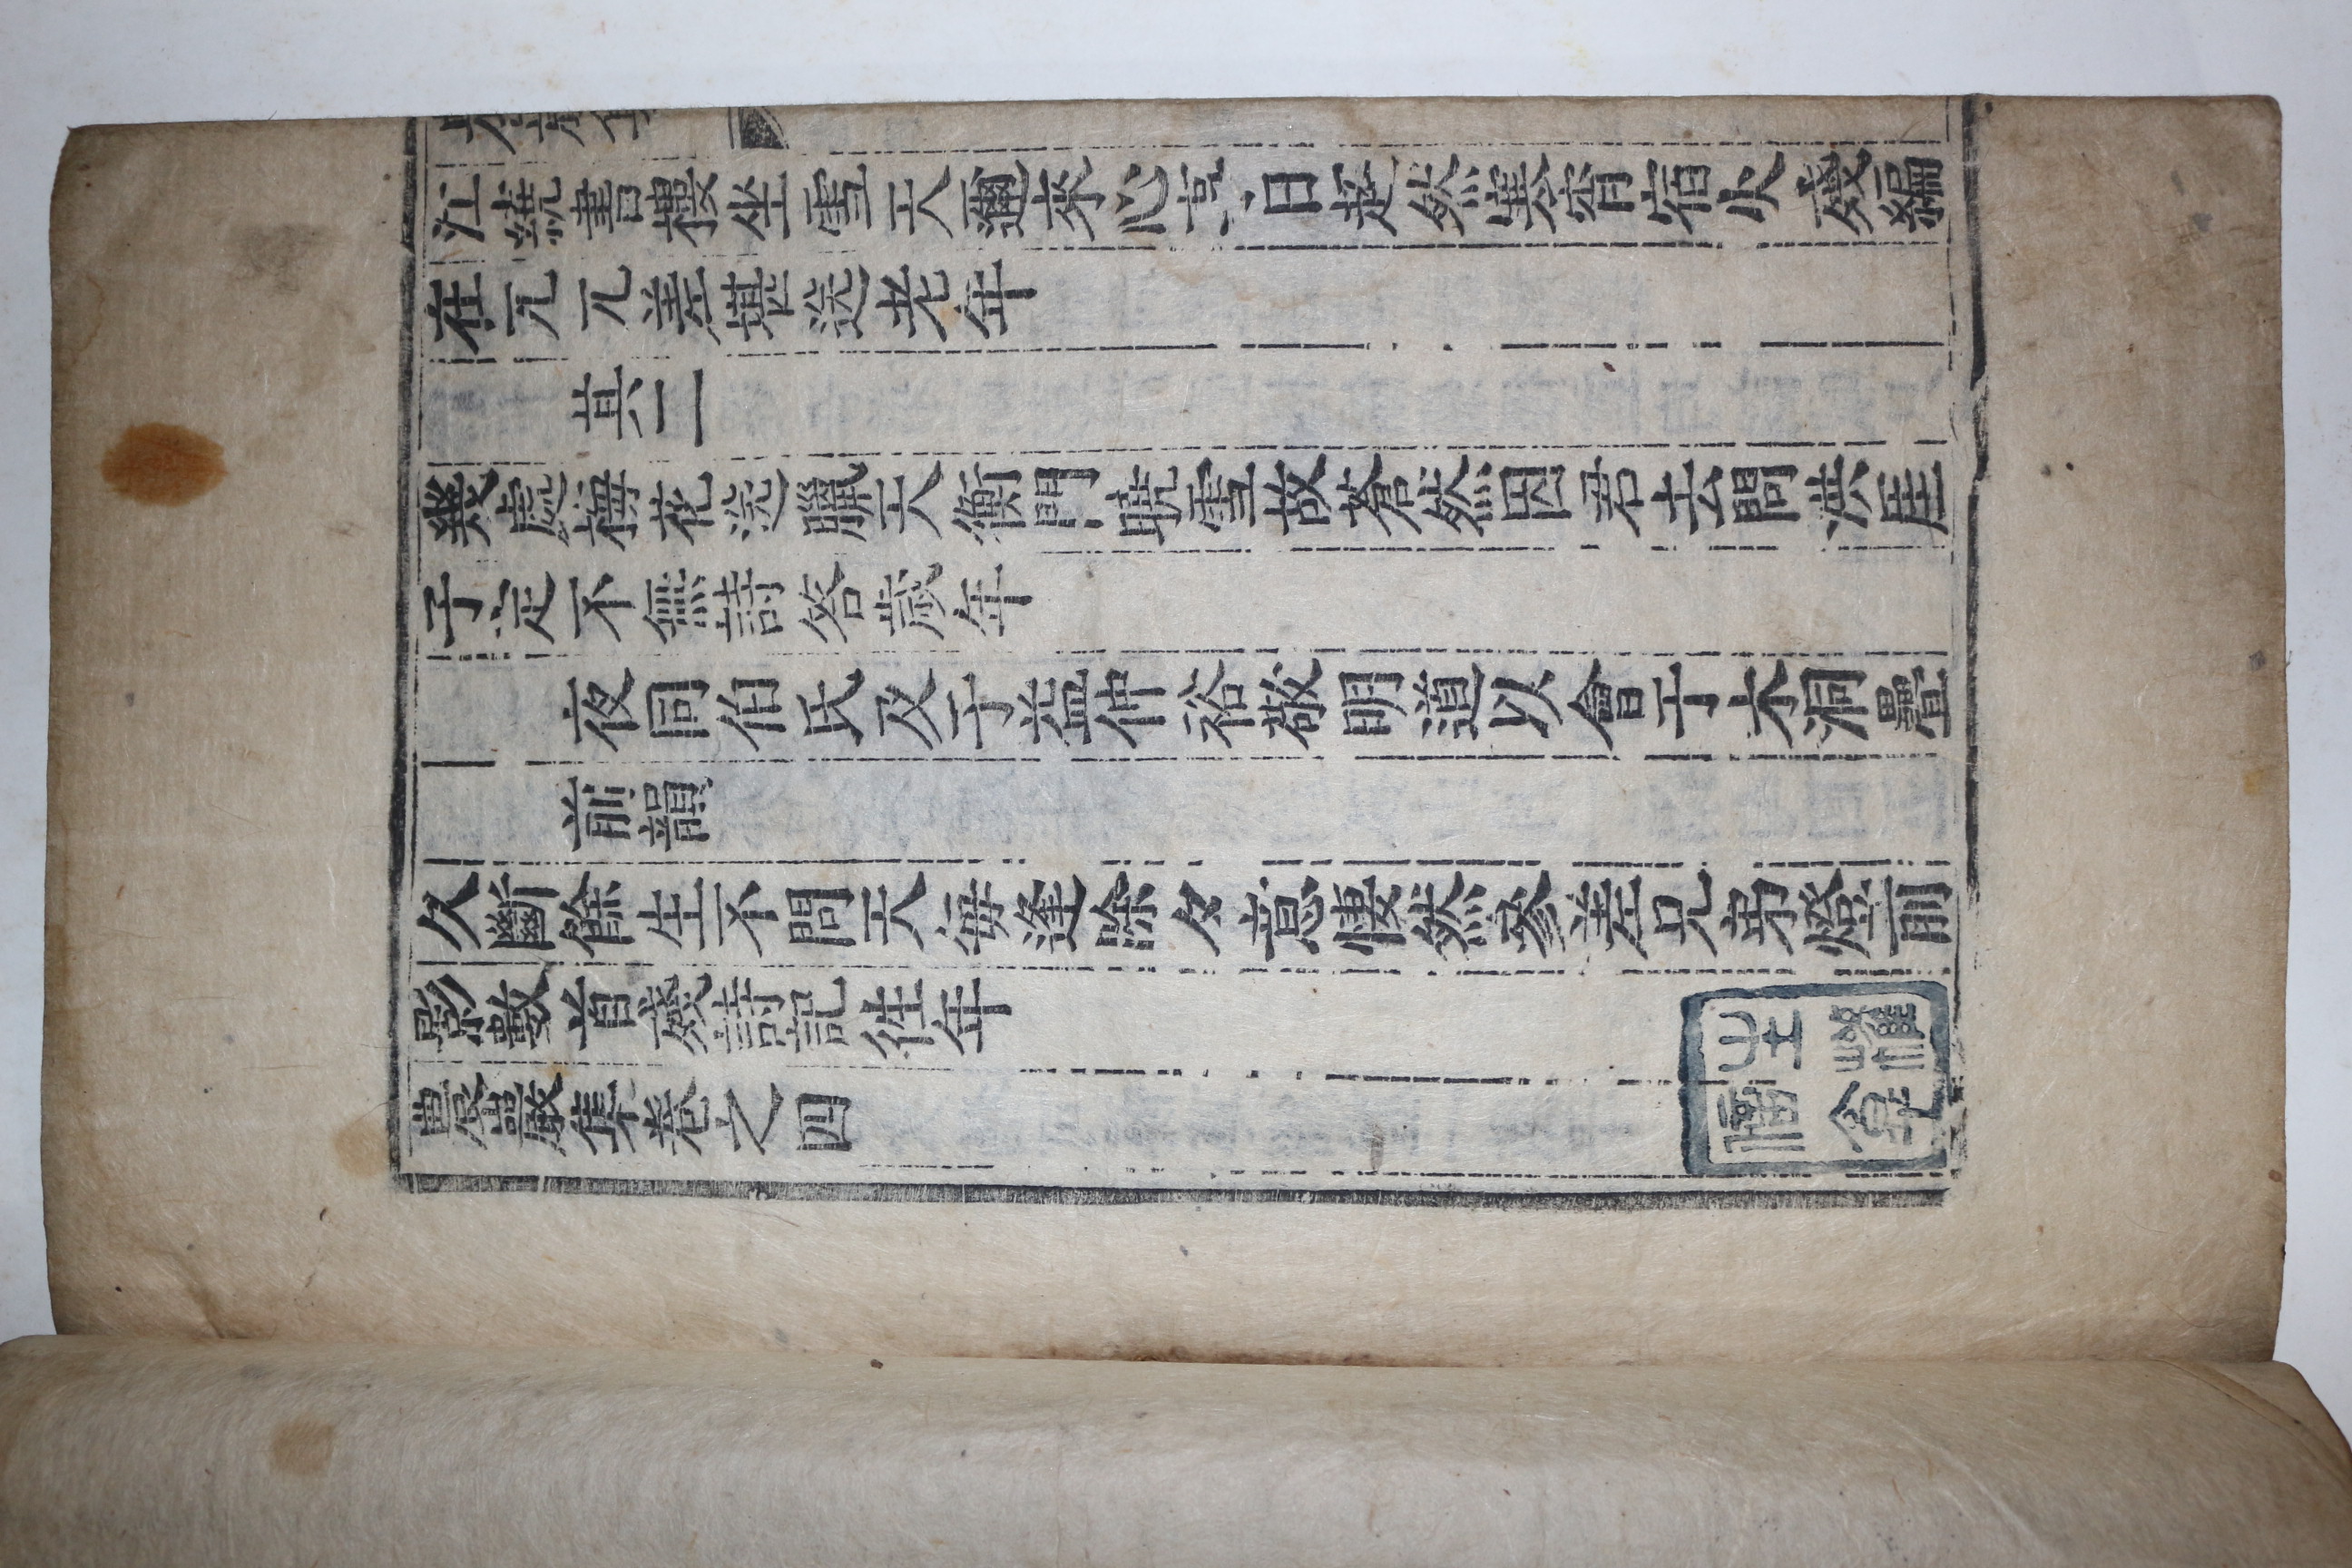 江繞書樓坐雪天邇來心日超然寒宵宿火殘編
在兀兀差堪送老年
其二
幾處梅花送臘天衡門曉雪故蒼然因君去問洪厓
子定不無詩答歲年
夜同伯氏及子益仲裕敬明道以會于木洞疊
前韻
久斷餘生不問天每逢除夕意悽然參差兄弟燈前
影數首殘詩記徃年
農巖集卷之四